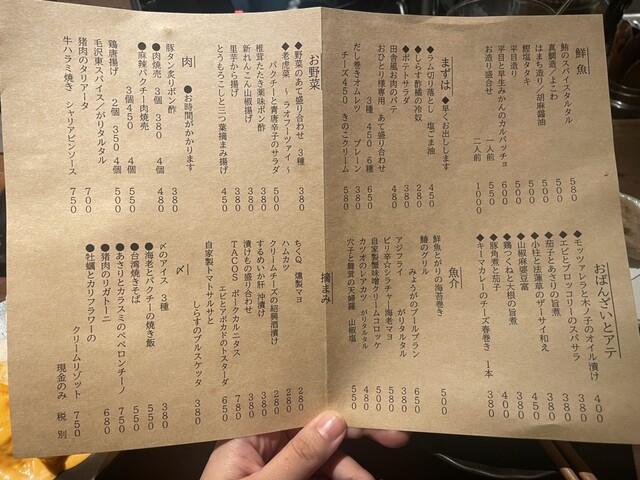 鮮魚
鮪のスパイスタルタル 580
真鯛造り/よこわ 500
はまち造り/胡麻醤油 500
鰹塩タタキ 500
平目造り 550
平目と早生みかんのカルパッチョ 600
お造り盛合せ 一人前 550
二人前 1000
まずは ●早くお出しします
●ラム切り落とし 塩ごま油 450
●しらす酢橘の冷奴 280
●ポテトサラダ 380
田舎風お肉のパテ 480
おひとり様専用 あて盛り合わせ
3種 450 6種 650
だし巻きオムレツ プレーン 380
チーズ 450 きのこクリーム 580
お野菜
●野菜のあて盛り合わせ 3種 380
●老虎菜 ～ラオフーツァイ～
パクチーと青唐辛子のサラダ 500
椎茸たたき薬味ポン酢 380
新れんこん山椒揚げ 380
里芋から揚げ 380
とうもろこしと三つ葉摘まみ揚げ 450
肉 ●お時間がかかります
豚タン炙りポン酢 380
●肉焼売 3個 380 4個 480
●麻辣パクチー肉焼売
3個 450 4個 550
鶏唐揚げ 2個 350 4個 500
毛沢東スパイス/がりタルタル 550
猪肉のタリアータ 700
牛ハラミ焼き シャリアピンソース 750
おばんざいとアテ
●モッツァレラと木ノ子のオイル漬け 400
●エビとブロッコリーのスパサラ 380
●あさりとアテの旨煮 380
●小柱と法蓮草のザーサイ和え 450
●山椒麻婆豆富 380
●鶏つくねと大根の旨煮 380
●豚角煮と茄子 480
●キーマカレーのチーズ春巻き 1本 380
魚介
鮮魚とがりの海苔巻き 500
鰆のグリル
みょうがのブールブラン 650
アジフライ がりタルタル 380
ピリ辛☆シラチャー海老マヨ 580
自家製蟹味噌クリームコロッケ 500
カツオのレアカツ がりタルタル 480
穴子と舞茸の天婦羅 山椒塩 550
摘まみ
ちくQ 燻製マヨ 280
ハムカツ 280
クリームチーズの紹興酒漬け 280
するめいか肝 沖漬け 380
漬けもの盛り合わせ 380
TACOS ポークカルニタス 780
エビとアボカドのトスターダ 650
自家製トマトサルサと
しらすのブルスケッタ 380
〆
〆のアイス 3種 380
●海老とパクチーの焼き飯 550
●台湾焼きそば 550
●あさりとカラスミのペペロンチーノ 750
●猪肉のリガトーニ 680
●牡蠣とカリフラワーの
クリームリゾット 750
現金のみ 税別